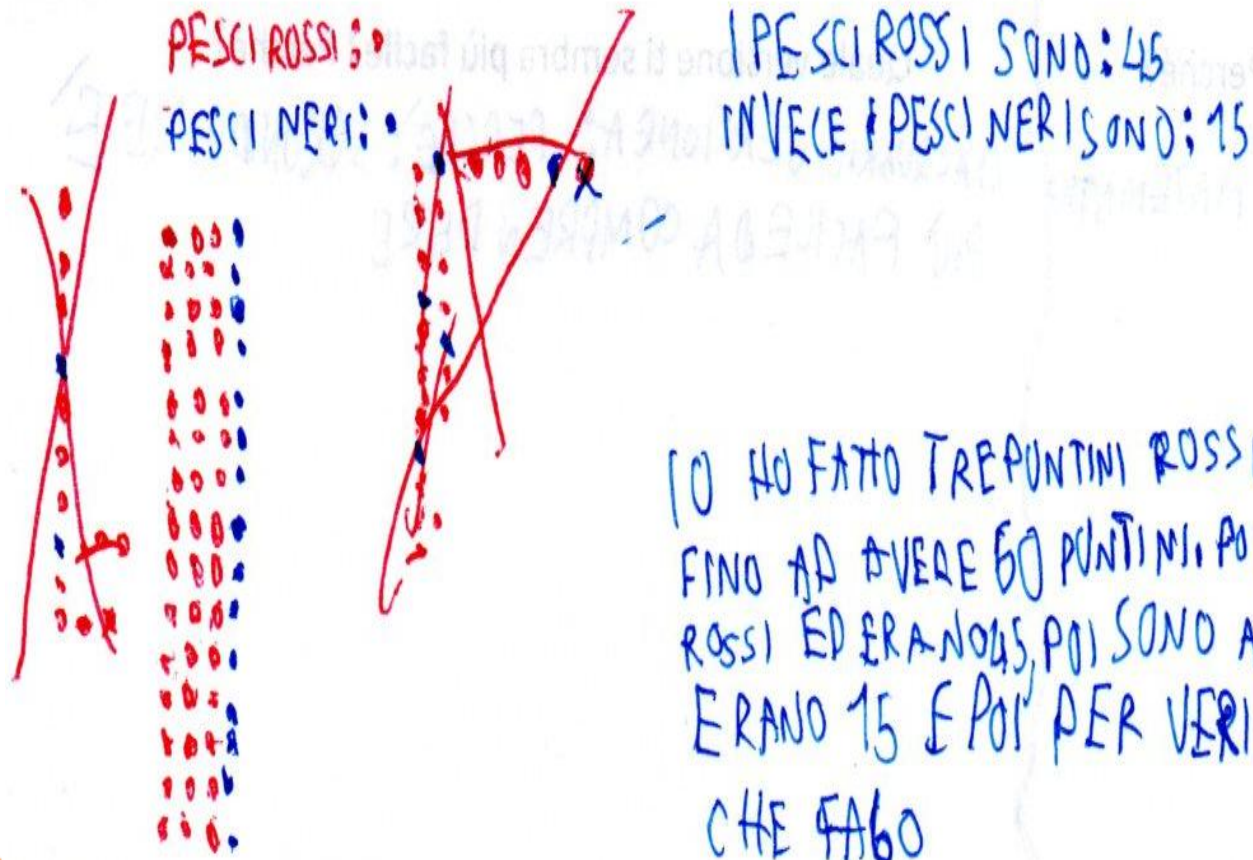 PESCI ROSSI:
PESCI NERI:
I PESCI ROSSI SONO: 45
INVECE I PESCI NERI SONO: 15
IO HO FATTO TRE PUNTINI ROSSI
FINO AD AVERE 60 PUNTINI. PO
ROSSI ED ERANO 45, POI SONO A
ERANO 15 E POI PER VERI
CHE FA 60